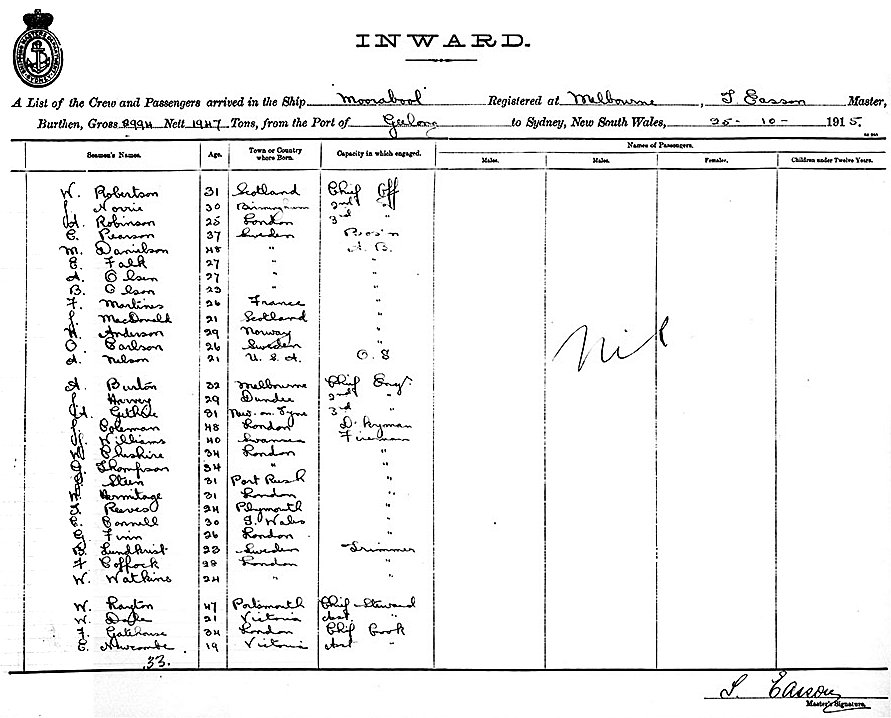 INWARD.
A List of the Crew and Passengers arrived in the Ship "Moorabool" Registered at Melbourne, Easson Master,
Burthen, Gross Nett 1947 Tons, from the Port of Geelong to Sydney, New South Wales, 25-10-1915.
Seamen's Names. Age. Town or Country where Born. Capacity in which engaged. Names of Passengers.
Males. Males. Females. Children under Twelve Years.
W. Robertson 31 Scotland Chief Off
J. Norrie 30 Birmingham 2nd "
Robinson 25 London 3rd "
C. Pearson 37 Sweden Bos'n
M. Danielson 48 " A.B.
E. Falk 27 " "
A. Olsen 27 " "
B. Olson 23 " "
F. Martines 26 France "
J. MacDonald 21 Scotland "
Anderson 29 Norway "
O. Carlson 26 Sweden "
A. Nelson 21 U.S.A. O.S
Nil
A. Burton 32 Melbourne Chief Engr
J. Harvey 29 Dundee 2nd "
Guthrie 31 New. on. Tyne 3rd "
J. Coleman 48 London D'kyman
Williams 40 Swansea Fireman
Cheshire 34 London "
Thompson 34 " "
Steen 31 Port Rush "
Hermitage 31 London "
Reeves 24 Plymouth "
C. Connell 30 S. Wales "
Finn 26 London "
Lundkvist 23 Sweden Trimmer
F. Coffock 28 London "
W. Watkins 24 " "
W. 47 Portsmouth Chief Steward
W. Dale 21 Victoria Asst "
F. Gatehouse 34 London Chief Cook
C. Newcombe 19 Victoria Asst "
33.
Easson
Master's Signature.